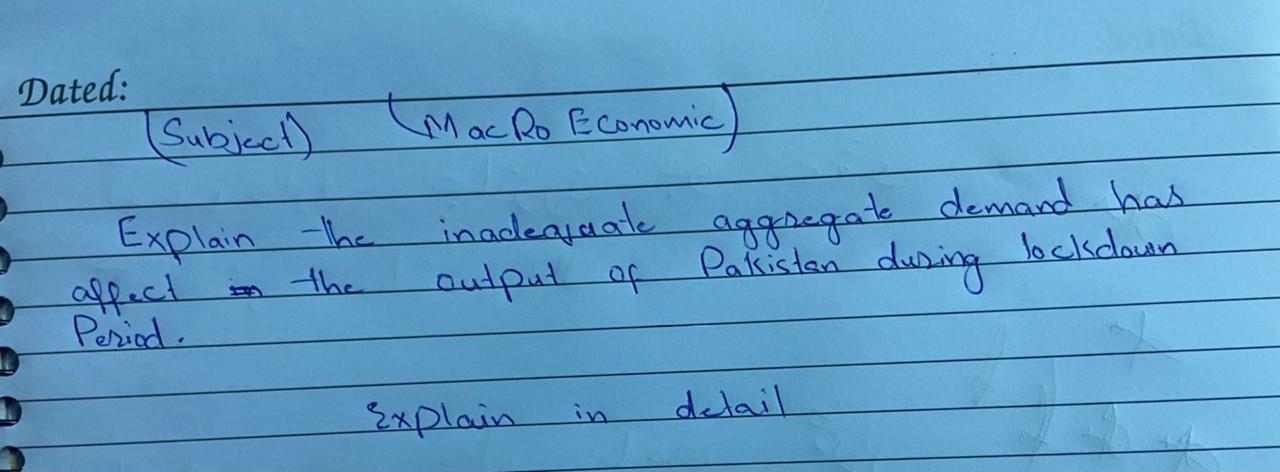 Dated:
(Subject) (MacRo Economic)
Explain the inadequate aggregate demand has
affect the output of Pakistan during locksdown
Period.
Explain in detail